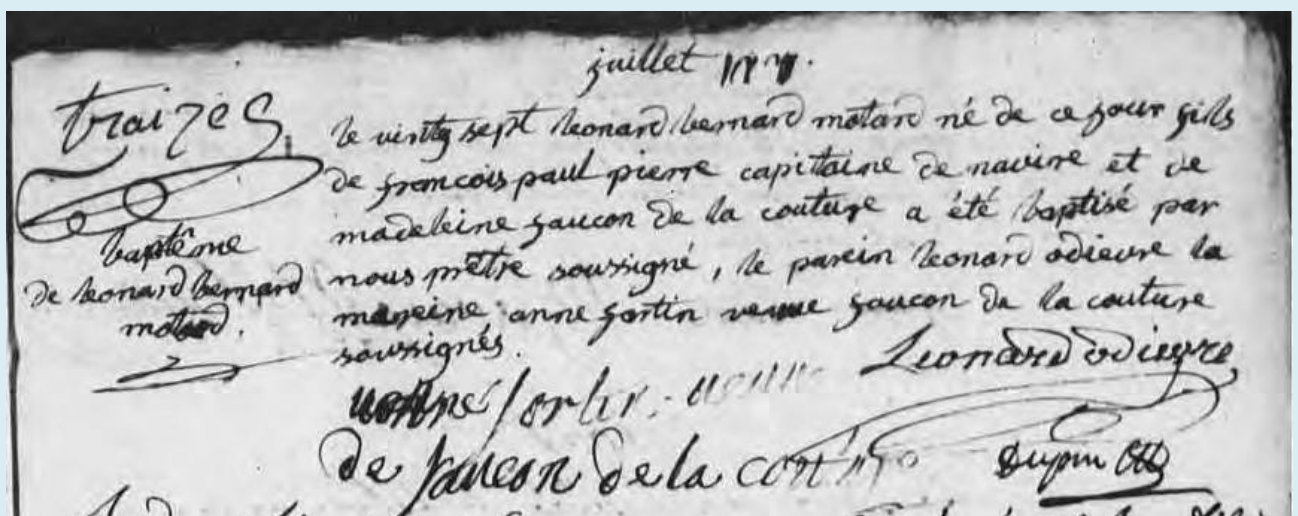 juillet
traizes
baptême
de leonard bernard
motard.
le vintg sept leonard bernard motard né de ce jour fils
de francois paul pierre capittaine de navire et de
madeleine faucon de la couture a été baptisé par
nous prêtre soussigné, le parein leonard odieuvre la
mareine anne fortin veuve faucon de la couture
soussignés.
Leonard odieuvre
anne fortin veuve
de faucon de la couture